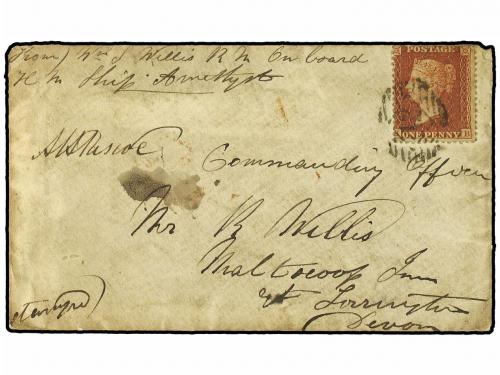 From) Wm J Willis R M On board
H M Ship Amethyst
POSTAGE
ONE PENNY
Commanding Officer
Mr R Willis
Inn
Torrington
Devon